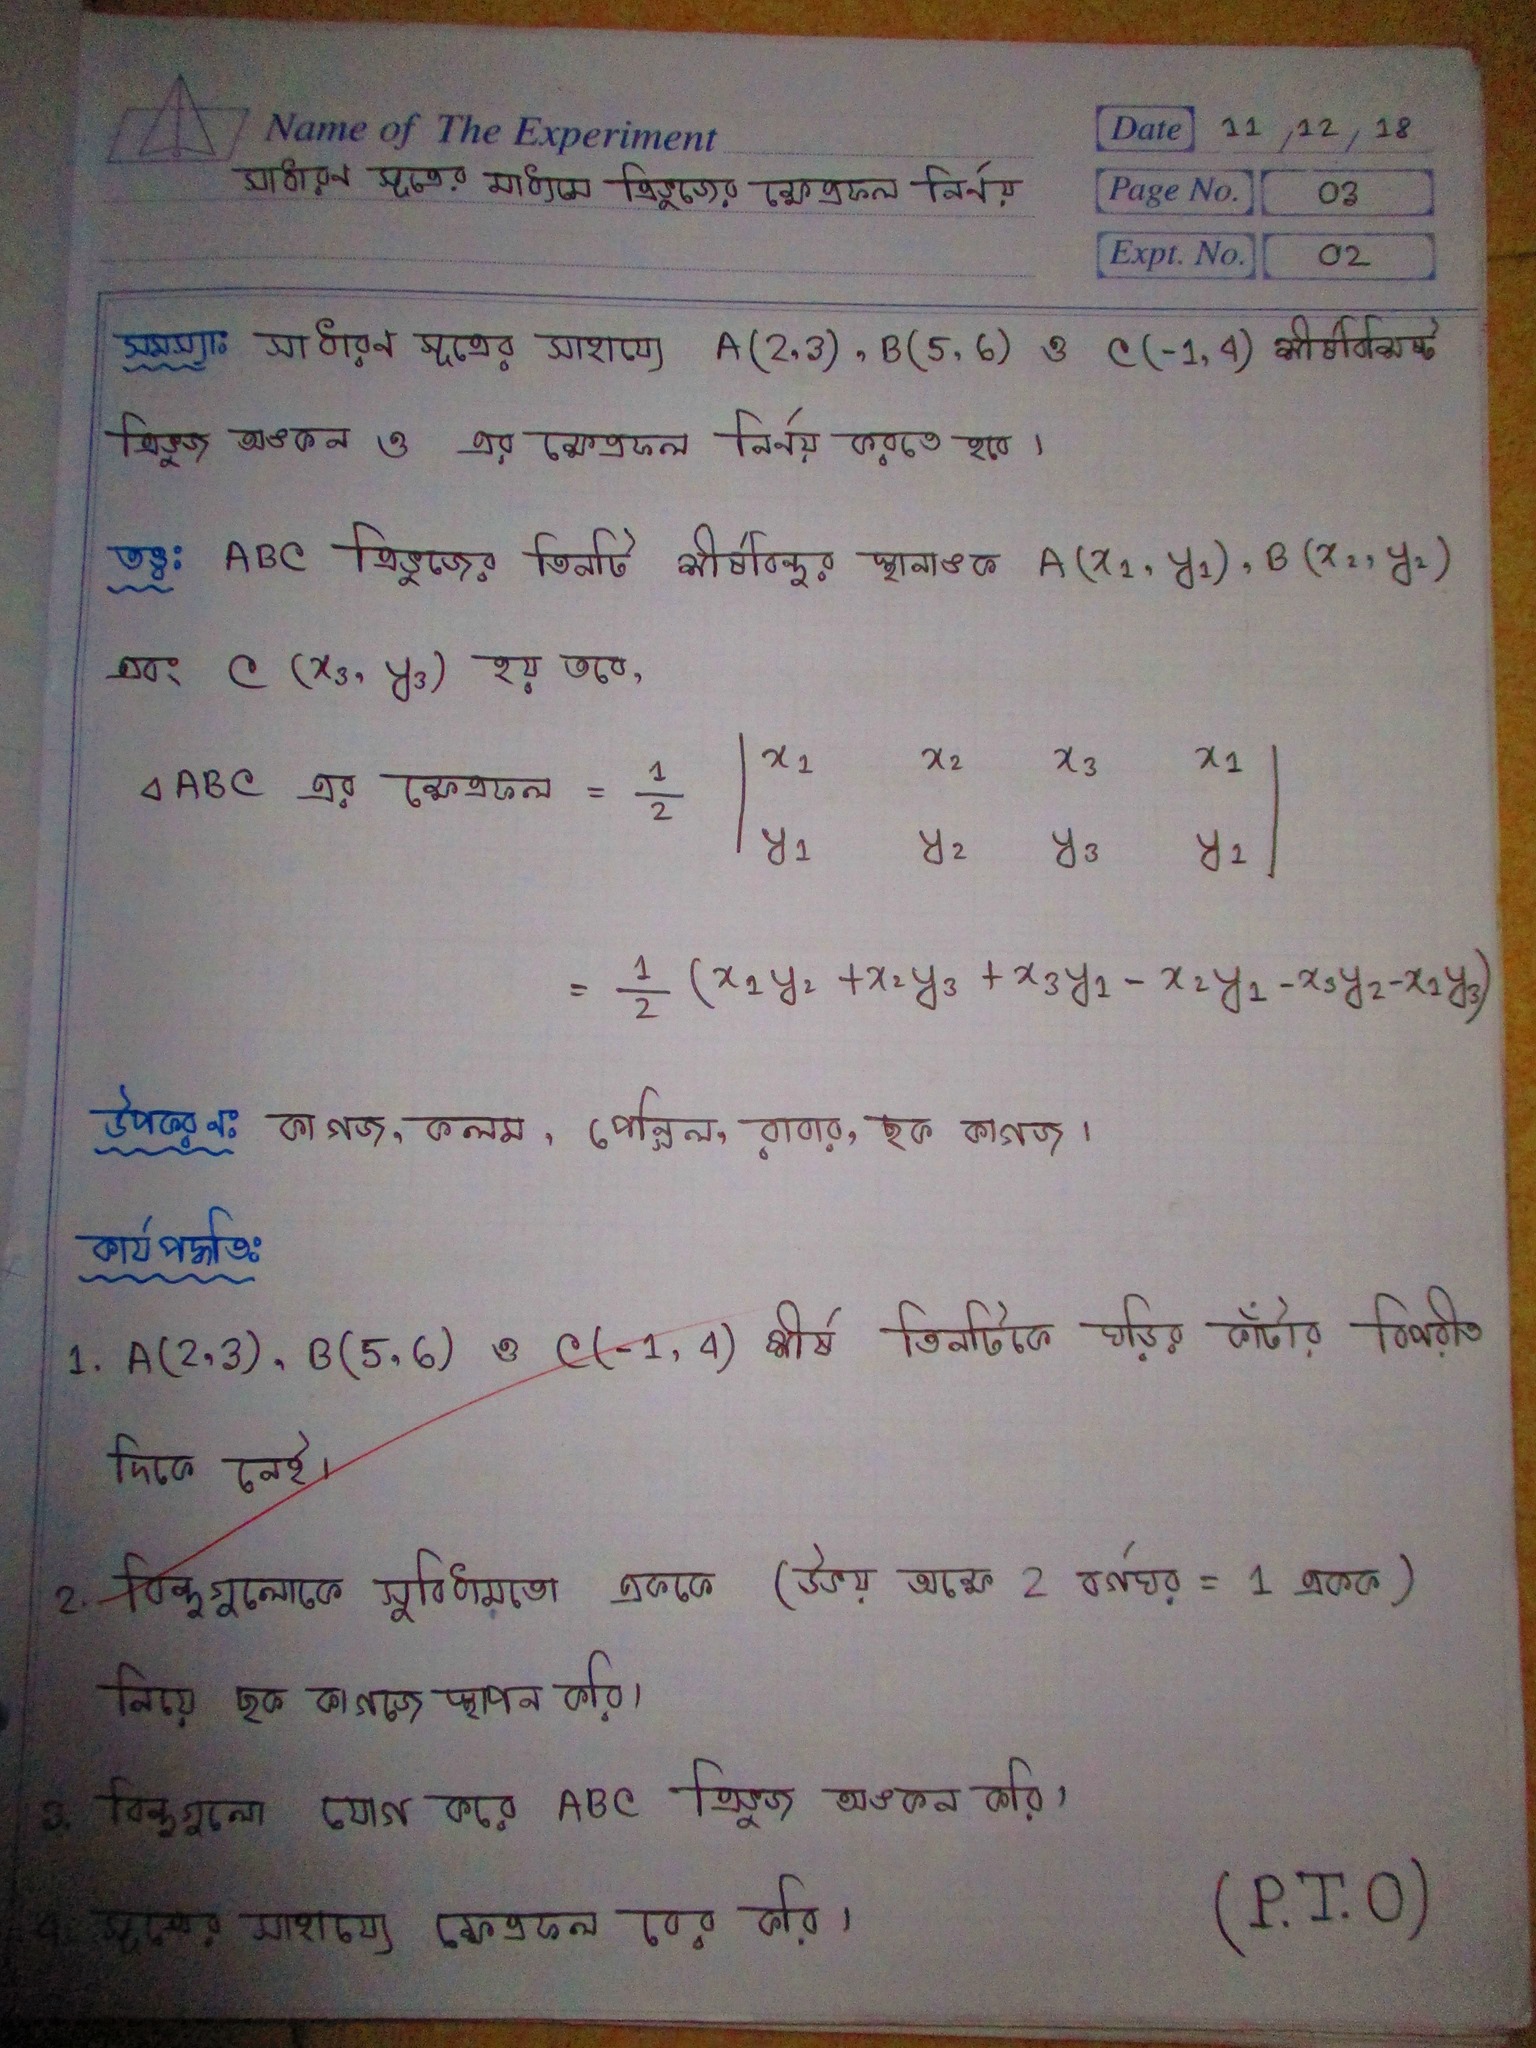 Name of The Experiment
সাধারন সূত্রের মাধ্যমে ত্রিভুজের ক্ষেত্রফল নির্নয়
Date 11, 12, 18
Page No. 03
Expt. No. 02
সমস্যাঃ সাধারন সূত্রের সাহায্যে A(2,3), B(5,6) ও C(-1,4) শীর্ষবিশিষ্ট
ত্রিভুজ অঙকন ও এর ক্ষেত্রফল নির্নয় করতে হবে।
তত্ত্বঃ ABC ত্রিভুজের তিনটি শীর্ষবিন্দুর স্থানাঙক A(x₁, y₁), B(x₂, y₂)
এবং C (x₃, y₃) হয় তবে,
△ABC এর ক্ষেত্রফল = 1/2 | x₁ x₂ x₃ x₁
y₁ y₂ y₃ y₁ |
= 1/2 (x₁y₂ + x₂y₃ + x₃y₁ - x₂y₁ - x₃y₂ - x₁y₃)
উপকরনঃ কাগজ, কলম, পেন্সিল, রাবার, ছক কাগজ।
কার্যপদ্ধতিঃ
1. A(2,3), B(5,6) ও C(-1,4) শীর্ষ তিনটিকে ঘড়ির কাঁটার বিপরীত
দিকে নেই।
2. বিন্দুগুলোকে সুবিধামতো এককে (উভয় অক্ষে 2 বর্গঘর = 1 একক)
নিয়ে ছক কাগজে স্থাপন করি।
3. বিন্দুগুলো যোগ করে ABC ত্রিভুজ অঙকন করি।
4. সূত্রের সাহায্যে ক্ষেত্রফল বের করি।
(P.T.O)